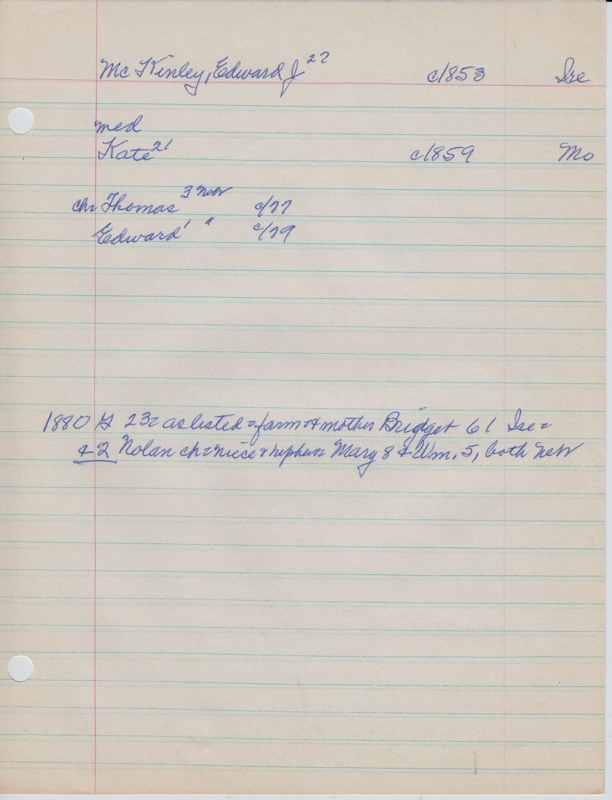 Mc Kinley, Edward J 27 c1853 Ire
med
Kate 21 c1859 Mo
ch Thomas 3 Neb c/77
Edward 1 " c/79
1880 23 = as listed = farm + mother Bridget 61 Ire =
+ 2 Nolan ch = niece + nephew Mary 8 + Wm. 5, both Neb